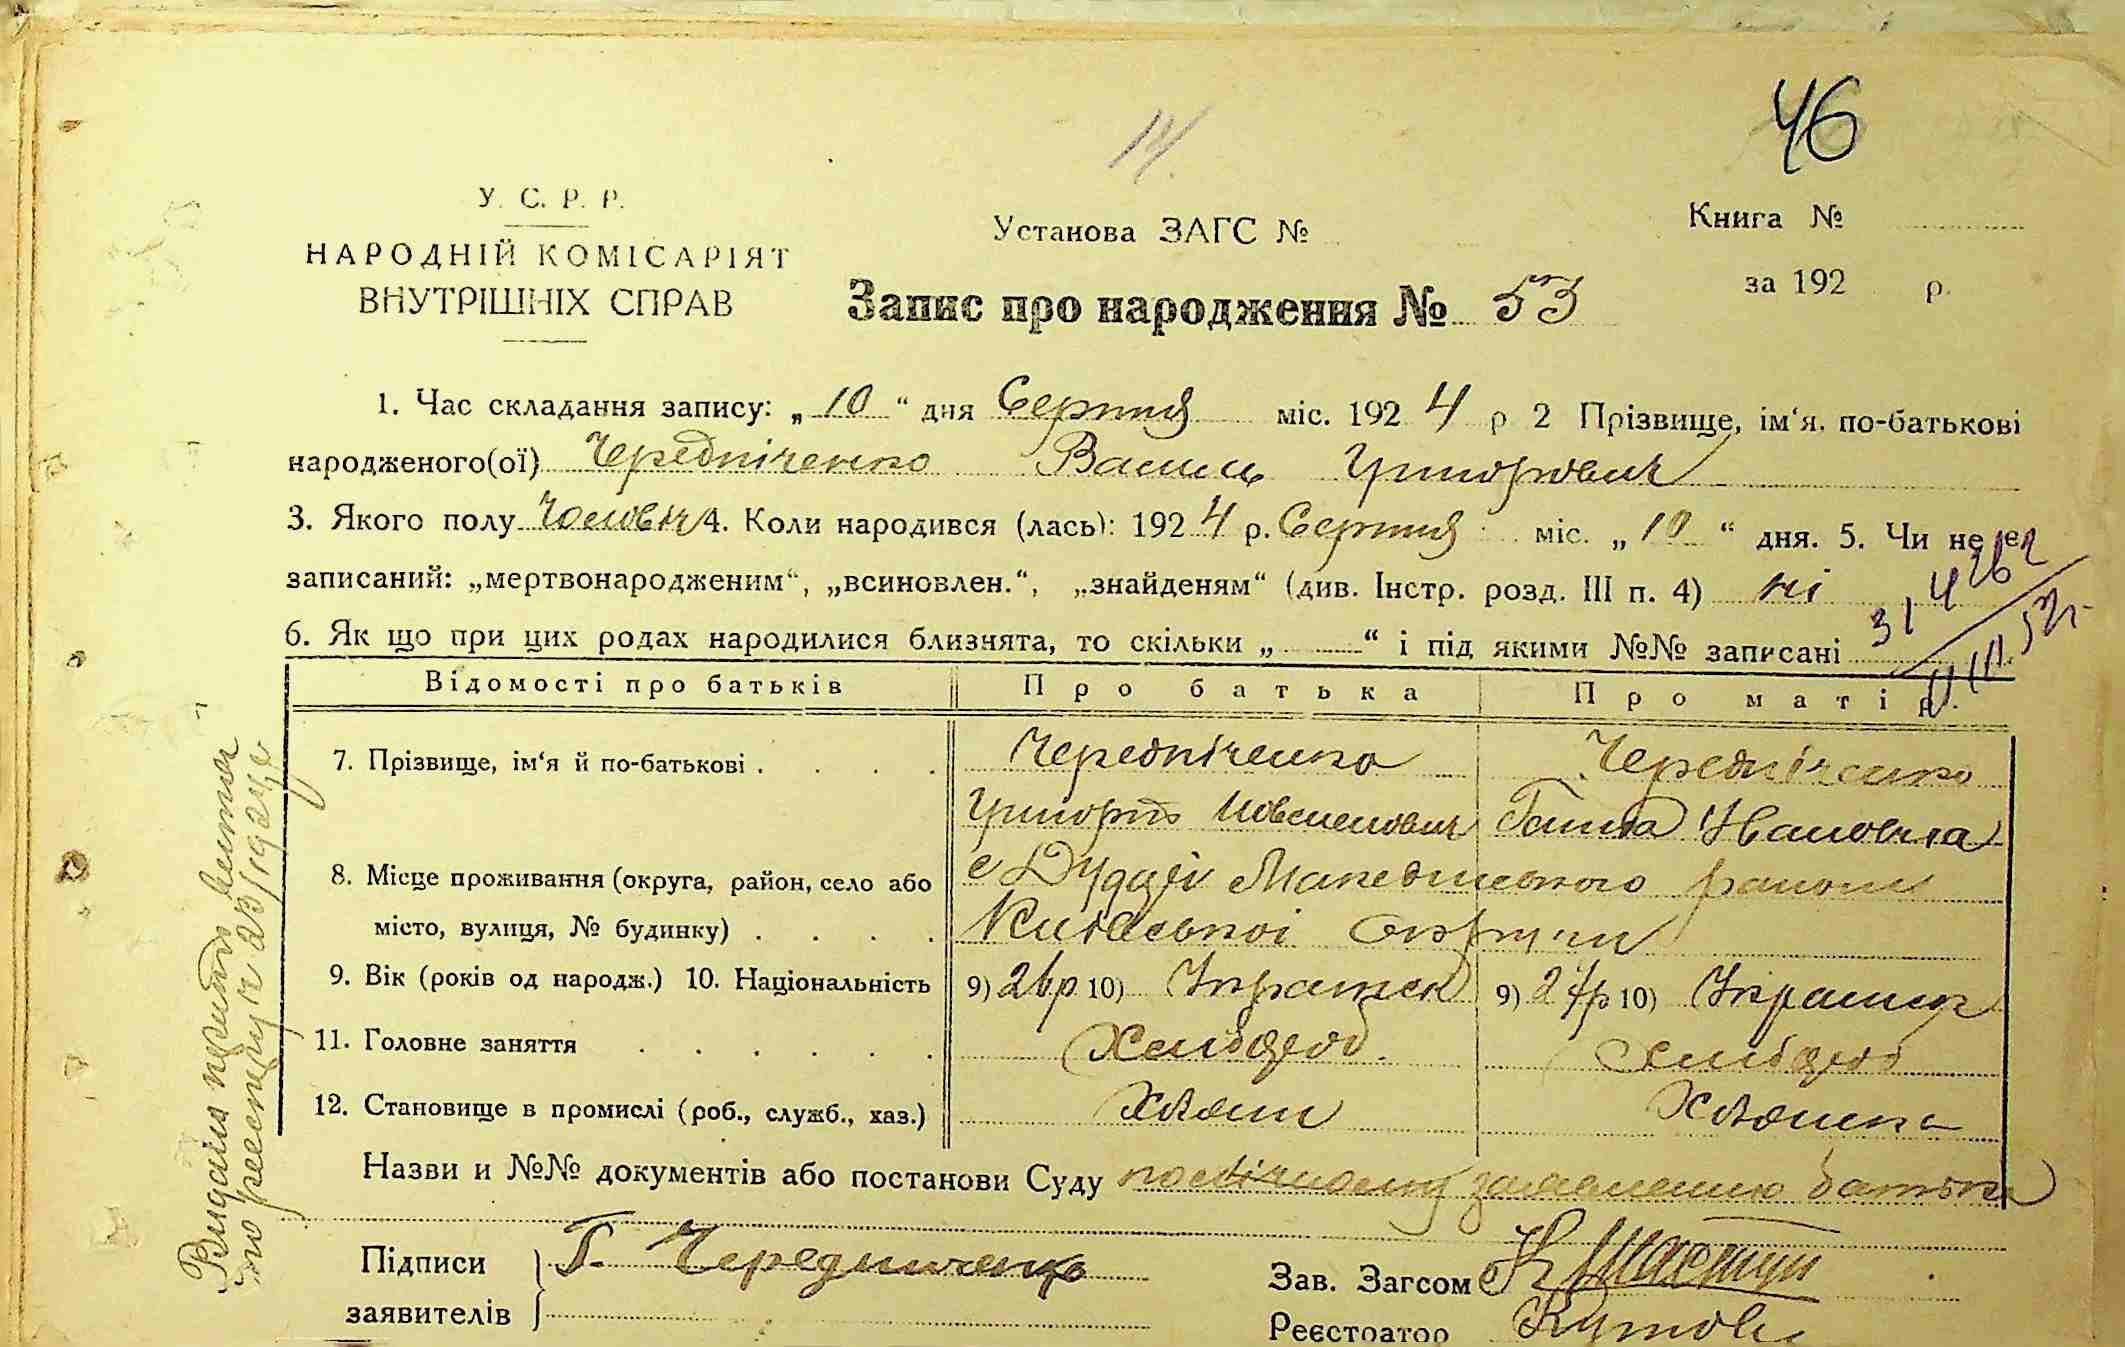 46
14.
У. С. Р. Р.
НАРОДНІЙ КОМІСАРІЯТ
ВНУТРІШНІХ СПРАВ
Установа ЗАГС №
Книга №
за 192 р.
Запис про народження № 53
1. Час складання запису: „10“ дня Серпня міс. 1924 р 2 Прізвище, ім‘я. по-батькові
народженого(ої) Чередніченко Василь Григорович
3. Якого полу Чоловіч 4. Коли народився (лась): 1924 р. Серпня міс. „10“ дня. 5. Чи не є
записаний: „мертвонародженим“, „всиновлен.“, „знайденям“ (див. Інстр. розд. III п. 4) ні
6. Як що при цих родах народилися близнята, то скільки „ “ і під якими №№ записані
Відомості про батьків Про батька Про матір.
7. Прізвище, ім‘я й по-батькові . . . . Чередніченко Чередніченко
Григорій Ганна Івановна
8. Місце проживання (округа, район, село або
с Дудари Македонського району
місто, вулиця, № будинку) . . . . Київської Округи
9. Вік (років од народж.) 10. Національність 9) 26р 10) Украінец 9) 24р 10) Украинк
11. Головне заняття . . . . . . Хлібороб. хлібороб
12. Становище в промислі (роб., служб., хаз.) Хазяин Хазяика
Назви и №№ документів або постанови Суду заявлению батька
Підписи
заявителів
Г. Чередниченко
Зав. Загсом
Реєстратор
Видана
по реестру № 23/1924р